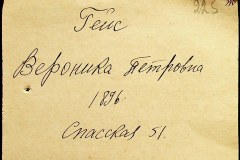 225
Гейс
Вероника Петровна
1896
Спасская 51.